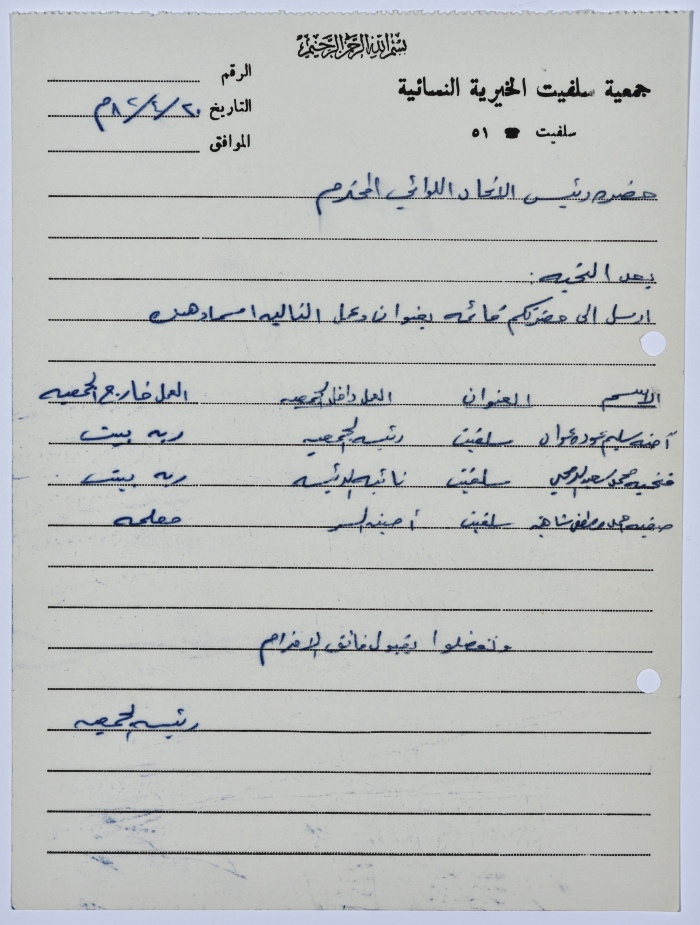 بسم الله الرحمن الرحيم
جمعية سلفيت الخيرية النسائية
سلفيت ☎ ٥١
الرقم
التاريخ ٢٠/٤/٨٢م
الموافق
حضرة رئيس الاتحاد اللوائي المحترم
بعد التحيه:
ارسل الى حضرتكم قائمه بعنوان وعمل التاليه اسماءهن
الاسم العنوان العمل داخل الجمعيه العمل خارج الجمعيه
آمنه سليم عوده عوان سلفيت رئيسه الجمعيه ربه بيت
فتحيه محمد سعيد سلفيت نائبه الرئيسه ربه بيت
صفيه احمد مصطفى شاهين سلفيت أمينه السر معلمه
وتفضلوا بقبول فائق الاحترام
رئيسه الجمعيه